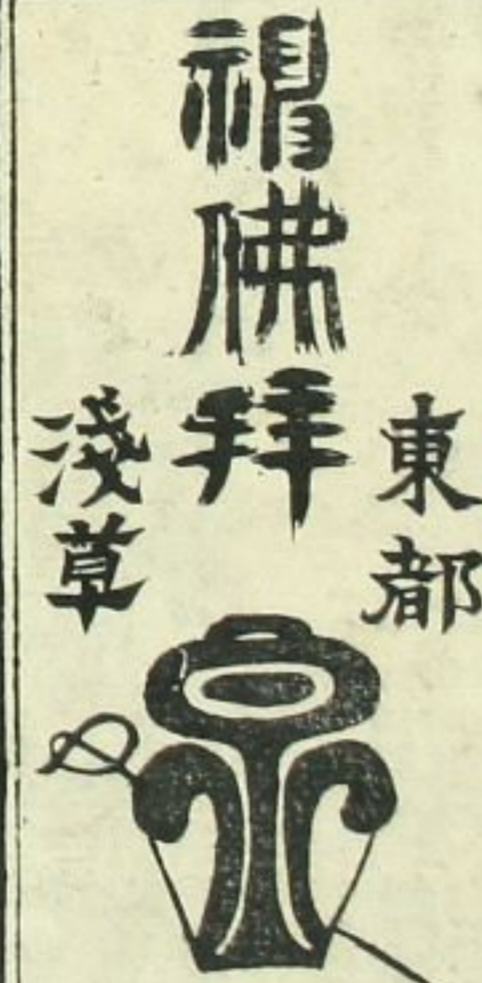 東都
神佛拜
淺草